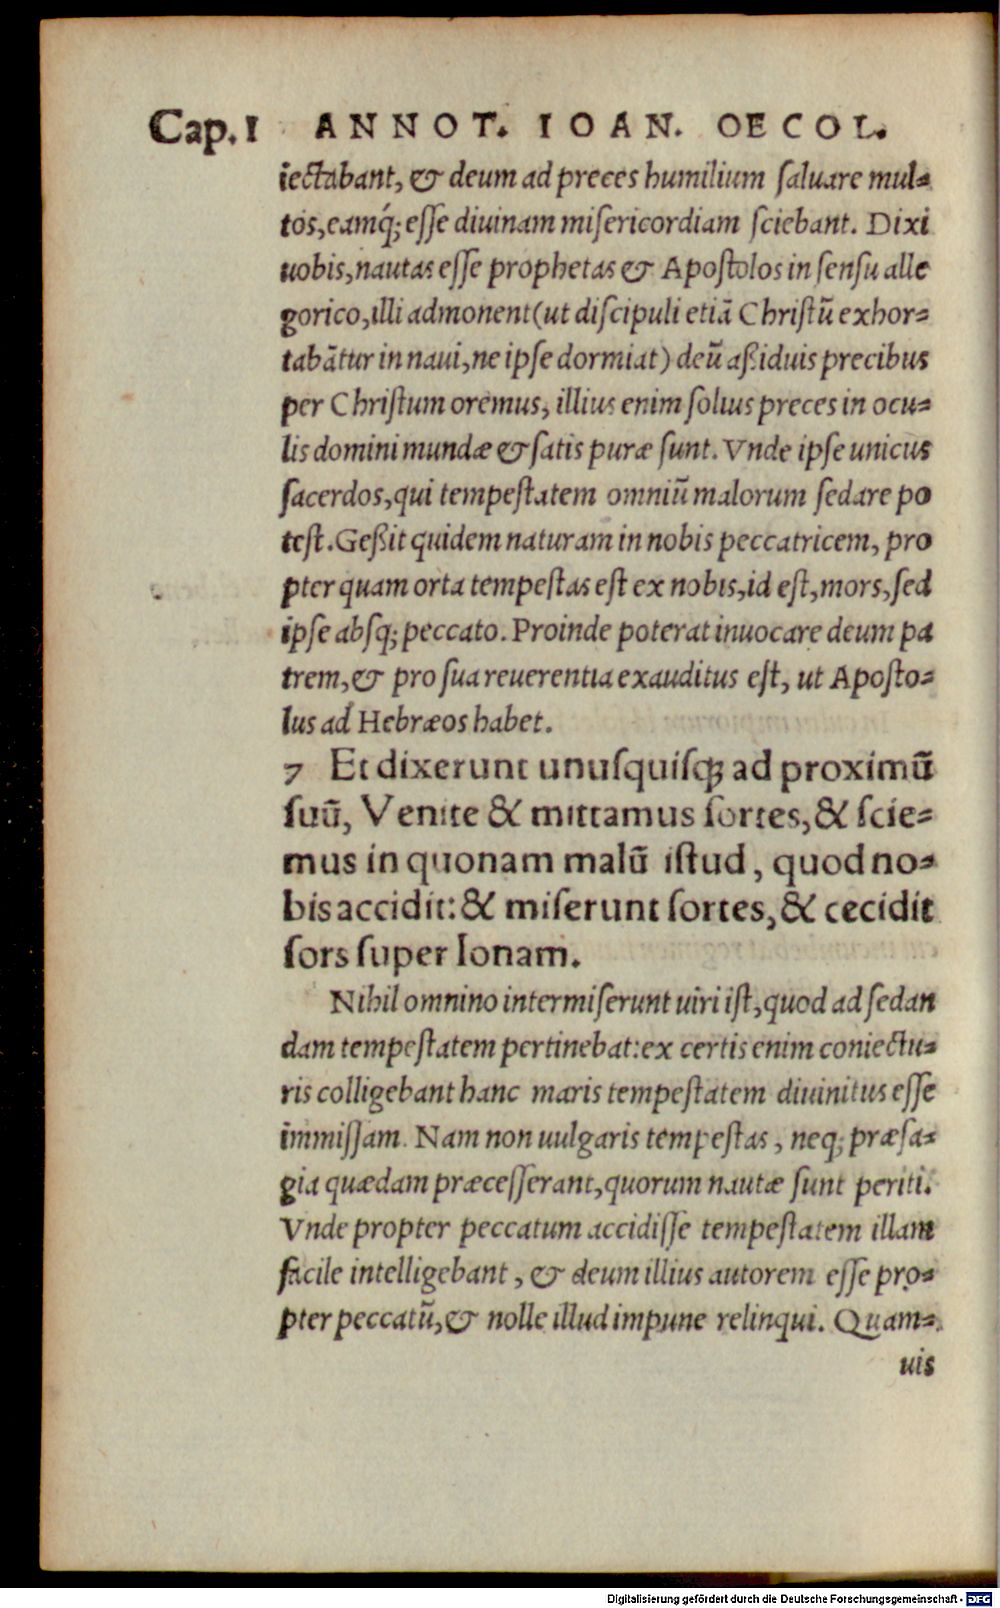 Cap.1 ANNOT. IOAN. OECOL.
iectabant, & deum ad preces humilium ſaluare mul⸗
tos, eamq́; eſſe diuinam miſericordiam ſciebant. Dixi
uobis, nautas eſſe prophetas & Apoſtolos in ſenſu alle
gorico, illi admonent (ut diſcipuli etiã Chriſtũ exhor⸗
tabãtur in naui, ne ipſe dormiat) deũ aßiduis precibus
per Chriſtum oremus, illius enim ſolius preces in ocu⸗
lis domini mundæ & ſatis puræ ſunt. Vnde ipſe unicus
ſacerdos, qui tempeſtatem omniũ malorum ſedare po
teſt. Geßit quidem naturam in nobis peccatricem, pro
pter quam orta tempeſtas eſt ex nobis, id eſt, mors, ſed
ipſe abſq; peccato. Proinde poterat inuocare deum pa
trem, & pro ſua reuerentia exauditus eſt, ut Apoſto⸗
lus ad Hebræos habet.
7 Et dixerunt unuſquiſq; ad proximũ
ſuũ, Venite & mittamus ſortes, & ſcie⸗
mus in quonam malũ iſtud, quod no⸗
bis accidit: & miſerunt ſortes, & cecidit
ſors ſuper Ionam.
Nihil omnino intermiſerunt uiri iſt, quod ad ſedan
dam tempeſtatem pertinebat: ex certis enim coniectu⸗
ris colligebant hanc maris tempeſtatem diuinitus eſſe
immiſſam. Nam non uulgaris tempeſtas, neq; præſa⸗
gia quædam præceſſerant, quorum nautæ ſunt periti.
Vnde propter peccatum accidiſſe tempeſtatem illam
facile intelligebant, & deum illius autorem eſſe pro⸗
pter peccatũ, & nolle illud impune relinqui. Quam⸗
uis
Digitalisierung gefördert durch die Deutsche Forschungsgemeinschaft - DFG